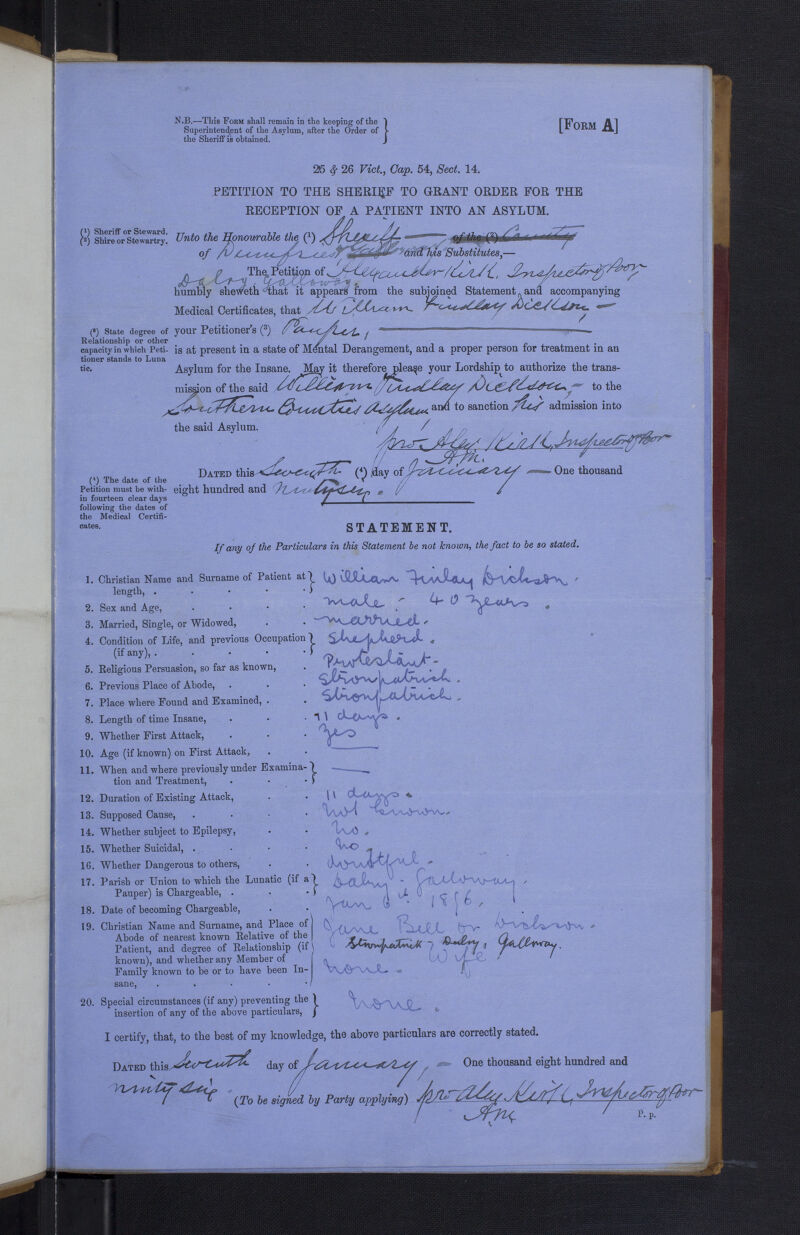 N.B.—This Form shall remain in the keeping of the
Superintendent of the Asylum, after the Order of
the Sheriff is obtained.
[Form A]
25 & 26 Vict., Cap. 54, Sect. 14.
PETITION TO THE SHERIFF TO GRANT ORDER FOR THE
RECEPTION OF A PATIENT INTO AN ASYLUM.
(1) Sheriff or Steward.
(2) Shire or Stewartry.
Unto the Honourable the (1) Sheriff — of the (2) County
of Dumfries & Galloway and his Substitutes,—
The Petition of Alexander Kirk, Inspector of Poor,
Dalry Galloway.
humbly sheweth that it appears from the subjoined Statement and accompanying
Medical Certificates, that William Findlay Dickson —
(3) State degree of
Relationship or other
capacity in which Peti-
tioner stands to Luna
tic.
your Petitioner's (3) Pauper, —
is at present in a state of Mental Derangement, and a proper person for treatment in an
Asylum for the Insane. May it therefore please your Lordship to authorize the trans-
mission of the said William Findlay Dickson, — to the
Southern Counties Asylum and to sanction his admission into
the said Asylum.
pro Alex Kirk, Inspector of Poor
A.M.
(4) The date of the
Petition must be with-
in fourteen clear days
following the dates of
the Medical Certifi-
cates.
Dated this Seventh (4) day of January — One thousand
eight hundred and ninty six.
STATEMENT.
If any of the Particulars in this Statement be not known, the fact to be so stated.
1. Christian Name and Surname of Patient at
length, . William Finlay Dickson.
2. Sex and Age, male - 40 years.
3. Married, Single, or Widowed, married.
4. Condition of Life, and previous Occupation
(if any), . Shepherd.
5. Religious Persuasion, so far as known, Protestant.
6. Previous Place of Abode, . Stronpatrick.
7. Place where Found and Examined, . Stronpatrick.
8. Length of time Insane, 11 days.
9. Whether First Attack, Yes
10. Age (if known) on First Attack, —
11. When and where previously under Examina-
tion and Treatment, —
12. Duration of Existing Attack, 11 days.
13. Supposed Cause, not known.
14. Whether subject to Epilepsy, no.
15. Whether Suicidal, . no.
16. Whether Dangerous to others, doubtful.
17. Parish or Union to which the Lunatic (if a
Pauper) is Chargeable, . Dalry - Galloway.
18. Date of becoming Chargeable, Jan 6th 1896.
19. Christian Name and Surname, and Place of
Abode of nearest known Relative of the
Patient, and degree of Relationship (if
known), and whether any Member of
Family known to be or to have been In-
sane,
Jane Bell or Dickson.
Stronpatrick, Dalry, Galloway.
Wife
none.
20. Special circumstances (if any) preventing the
insertion of any of the above particulars, none.
I certify, that, to the best of my knowledge, the above particulars are correctly stated.
Dated this Seventh day of January, — One thousand eight hundred and
ninty six. (To be signed by Party applying) pro Alex Kirk, Inspector of Poor
A.M.
P. p.